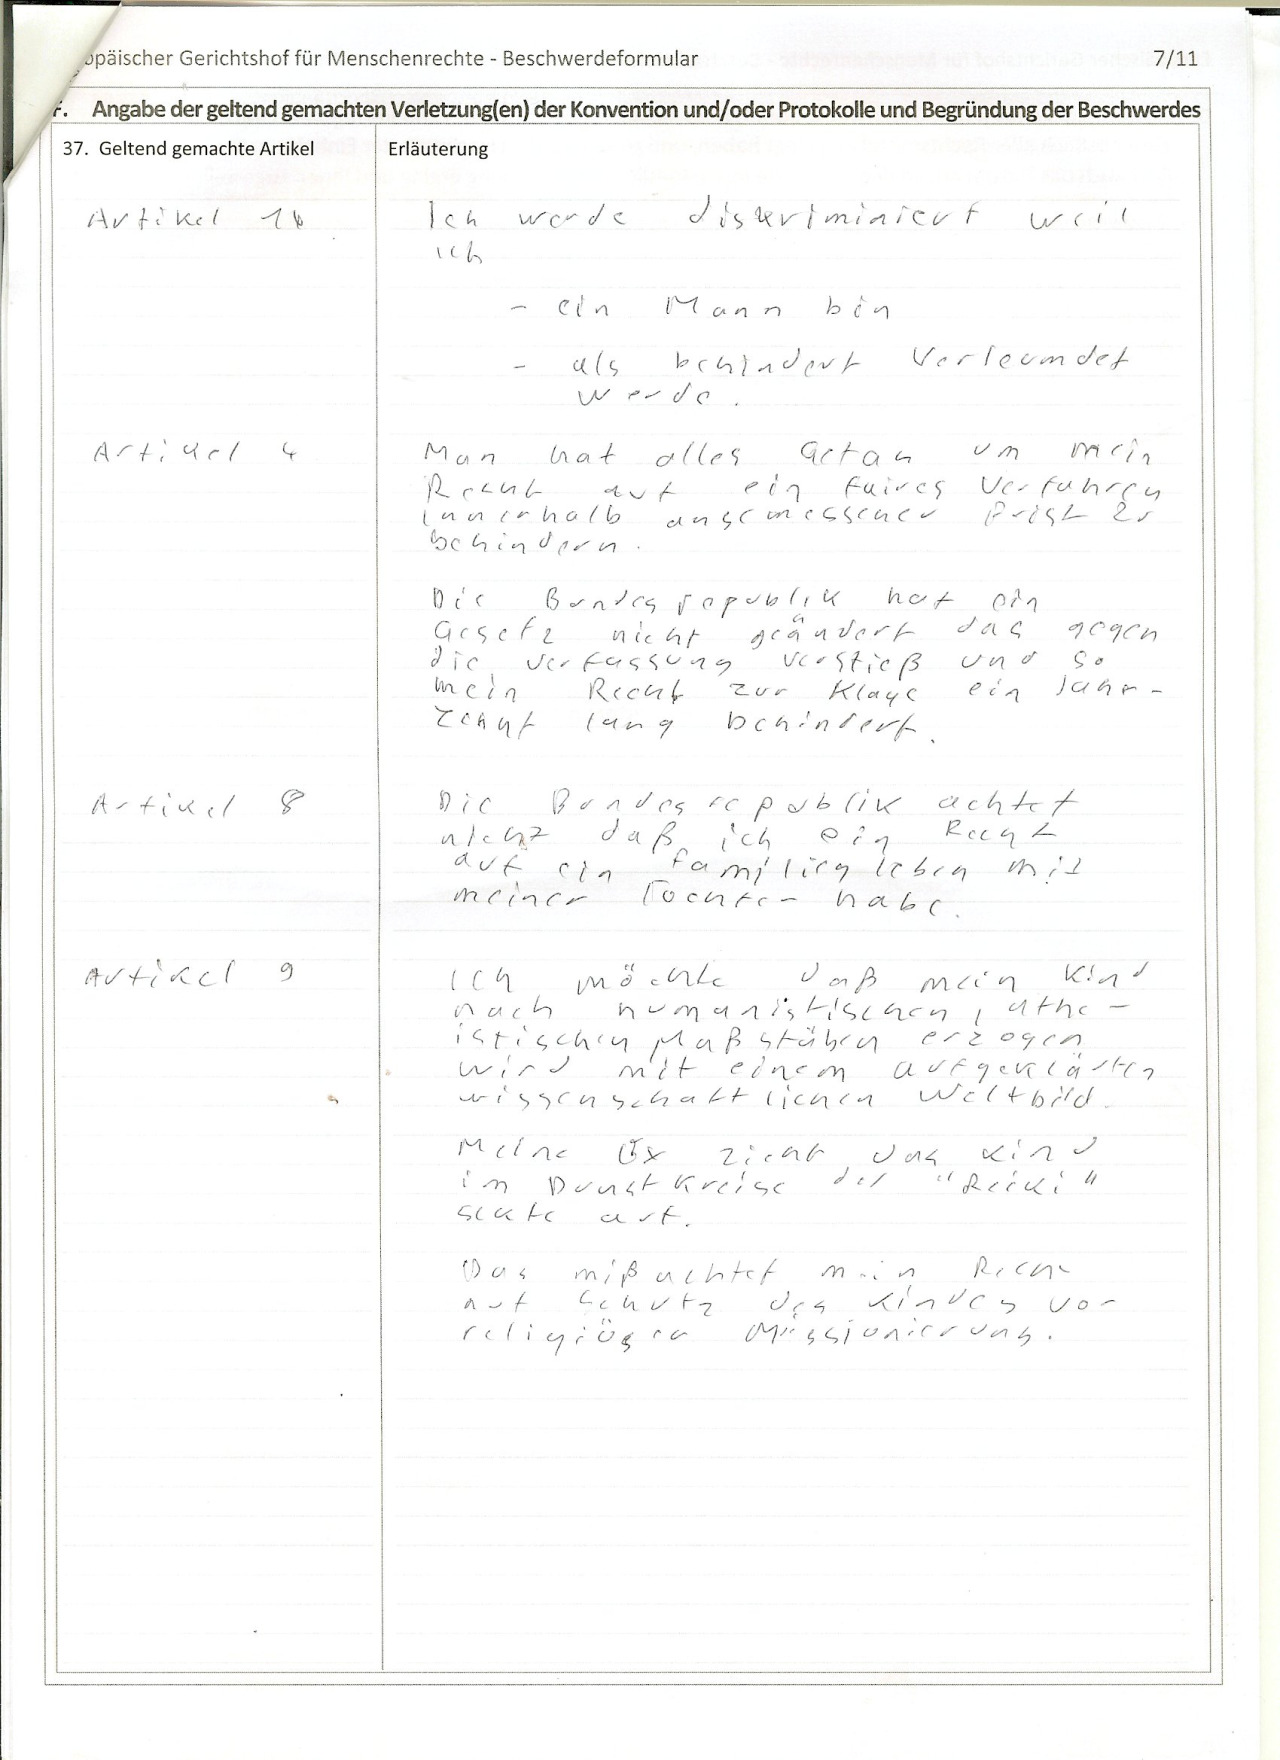 opäischer Gerichtshof für Menschenrechte - Beschwerdeformular 7/11
F. Angabe der geltend gemachten Verletzung(en) der Konvention und/oder Protokolle und Begründung der Beschwerdes
37. Geltend gemachte Artikel Erläuterung
Artikel 14 Ich werde diskriminiert weil
ich
- ein Mann bin
- als behindert verleumdet
werde.
Artikel 4 Man hat alles Getan um mein
Recht auf ein faires Verfahren
innerhalb angemessener Frist zu
behindern.
Die Bundesrepublik hat ein
Gesetz nicht geändert das gegen
die Verfassung verstieß und so
mein Recht zur Klage ein Jahr-
zehnt lang behindert.
Artikel 8 Die Bundesrepublik achtet
nicht daß ich ein Recht
auf ein Familienleben mit
meiner Tochter habe.
Artikel 9 Ich möchte daß mein Kind
nach humanistischen, athe-
istischen Maßstäben erzogen
wird mit einem aufgeklärten
wissenschaftlichen Weltbild.
Meine Ex zieht das Kind
im Dunstkreise der "Reiki"
Sekte auf.
Das mißachtet mein Recht
auf Schutz des Kindes vor
religiöser Missionierung.